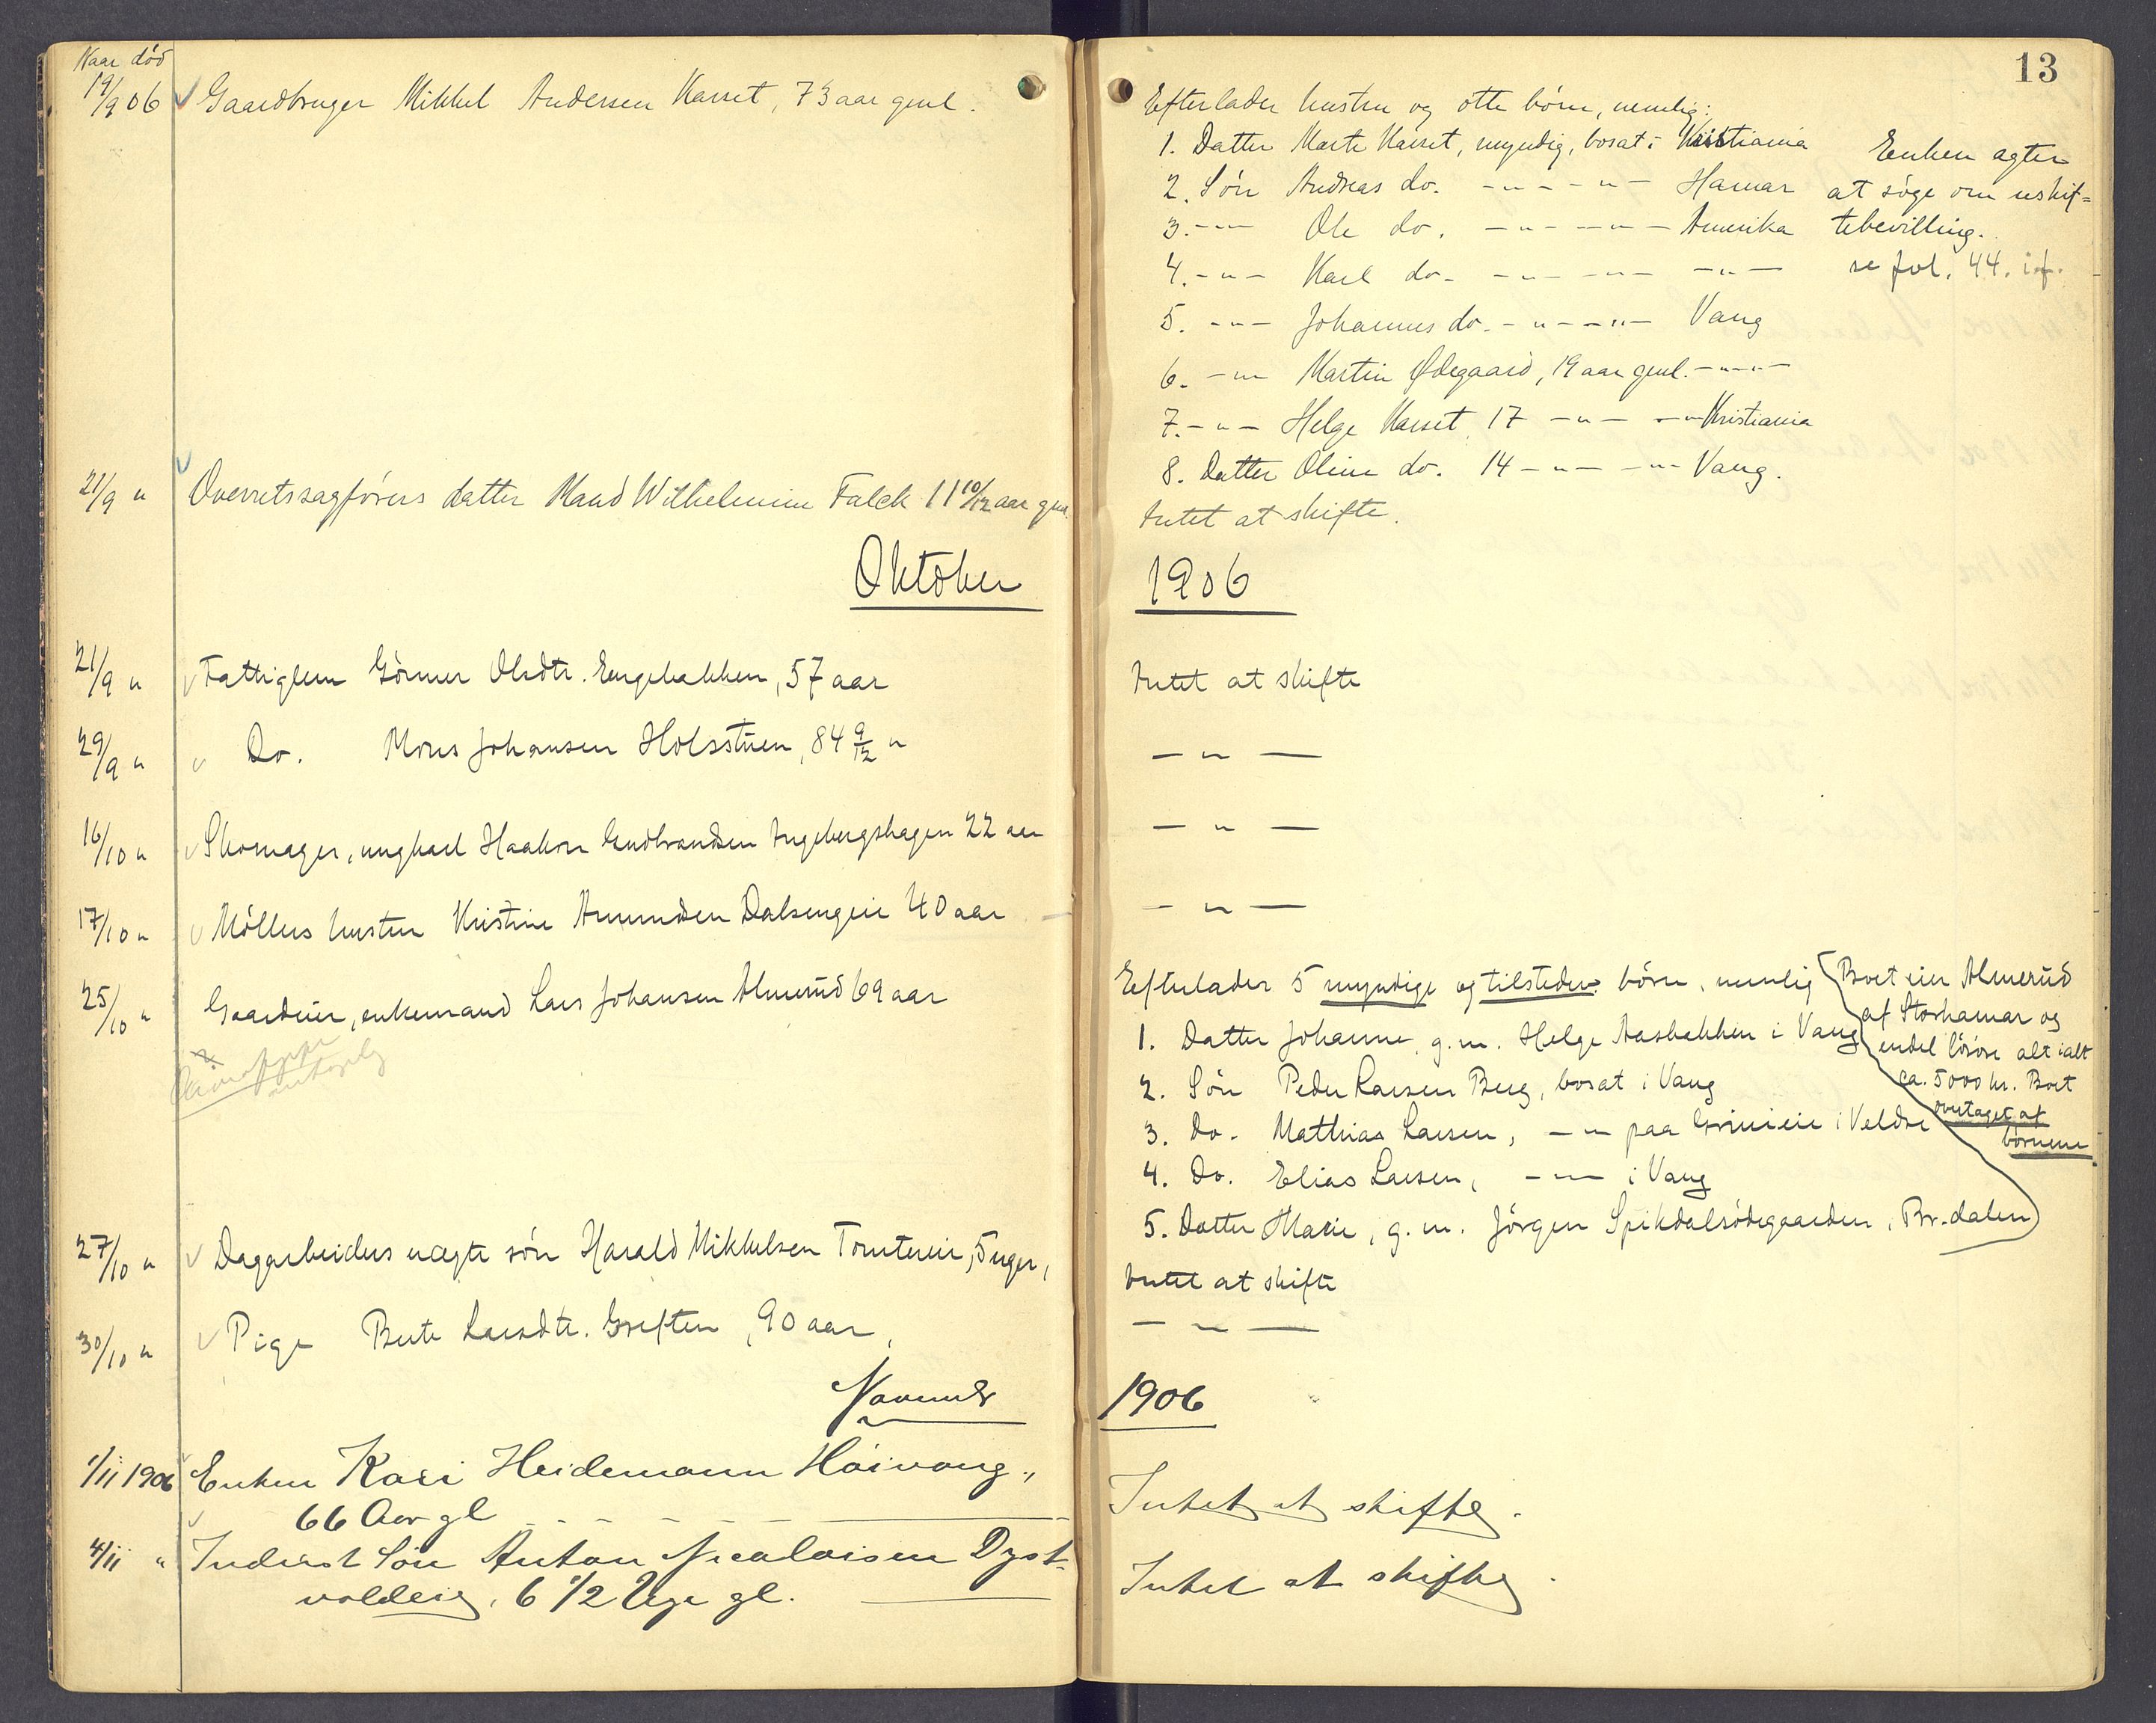 Naar död
19/9 06 Gaardbruger Mikkel Andersen Kaset, 73 aar geml.
21/9 " Overretssagförers datter Maud Wilhelmine Falck 11 10/12 aar gml.
Oktober
21/9 " Fattiglem Görner Olsdtr. Engebakken, 57 aar
29/9 " Do. Mons Johansen Holsstuen, 84 9/12 "
16/10 " Skomager, ungkarl Haakon Gudbrandsen Ingebergshagen 22 aar
17/10 " Möllers hustru Kristine Amundsen Dalsengeie 40 aar
25/10 " Gaardeier, enkemand Lars Johansen Almerud 69 aar
27/10 " Dagarbeiders uægte sön Harald Mikkelsen Tomtereie, 5 uger,
30/10 " Pige Berte Larsdtr. Greften, 90 aar,
Novembr
1/11 1906 Enken Kari Heidemann Höivang,
66 Aar gl
4/11 " Inderst Sön Anton Nicolaisen Dyst-
voldeie, 6 1/2 Uge gl.
13
Efterlader hustru og otte börn, nemlig:
1. Datter Marte Kaset, myndig, bosat i Kristiania
2. Sön Andreas do. - " - - " - Hamar
3. - " - Ole do. - " - - " - Amerika
4. - " - Karl do. - " - - " - - " -
5. - " - Johannes do. - " - - " - Vang
6. - " - Martin Ødegaard, 19 aar geml. - " - - " -
7. - " - Helge Kaset, 17 - " - - " - Kristiania
8. Datter Oline do. 14 - " - - " - Vang.
Enken agter
at söge om uskif=
tebevilling.
se fol. 44. i f.
Intet at skifte.
1906
Intet at skifte
- " -
- " -
- " -
Efterlader 5 myndige og tilstedev. börn, nemlig
1. Datter Johanne, g.m. Helge Aasbakken i Vang
2. Sön Peder Larsen Berg, bosat i Vang
3. Do. Mathias Larsen, - " - paa Grinieie i Veldre
4. Do. Elias Larsen, - " - i Vang
5. Datter Marie, g.m. Jörgen Spikdalsödegaarden, Br.dalen
Boet eier Almerud
af Storhamar og
endel lösöre alt ialt
ca. 5000 kr. Boet
overtaget af
börnene
Intet at skifte
- " -
1906
Intet at skifte.
Intet at skifte.